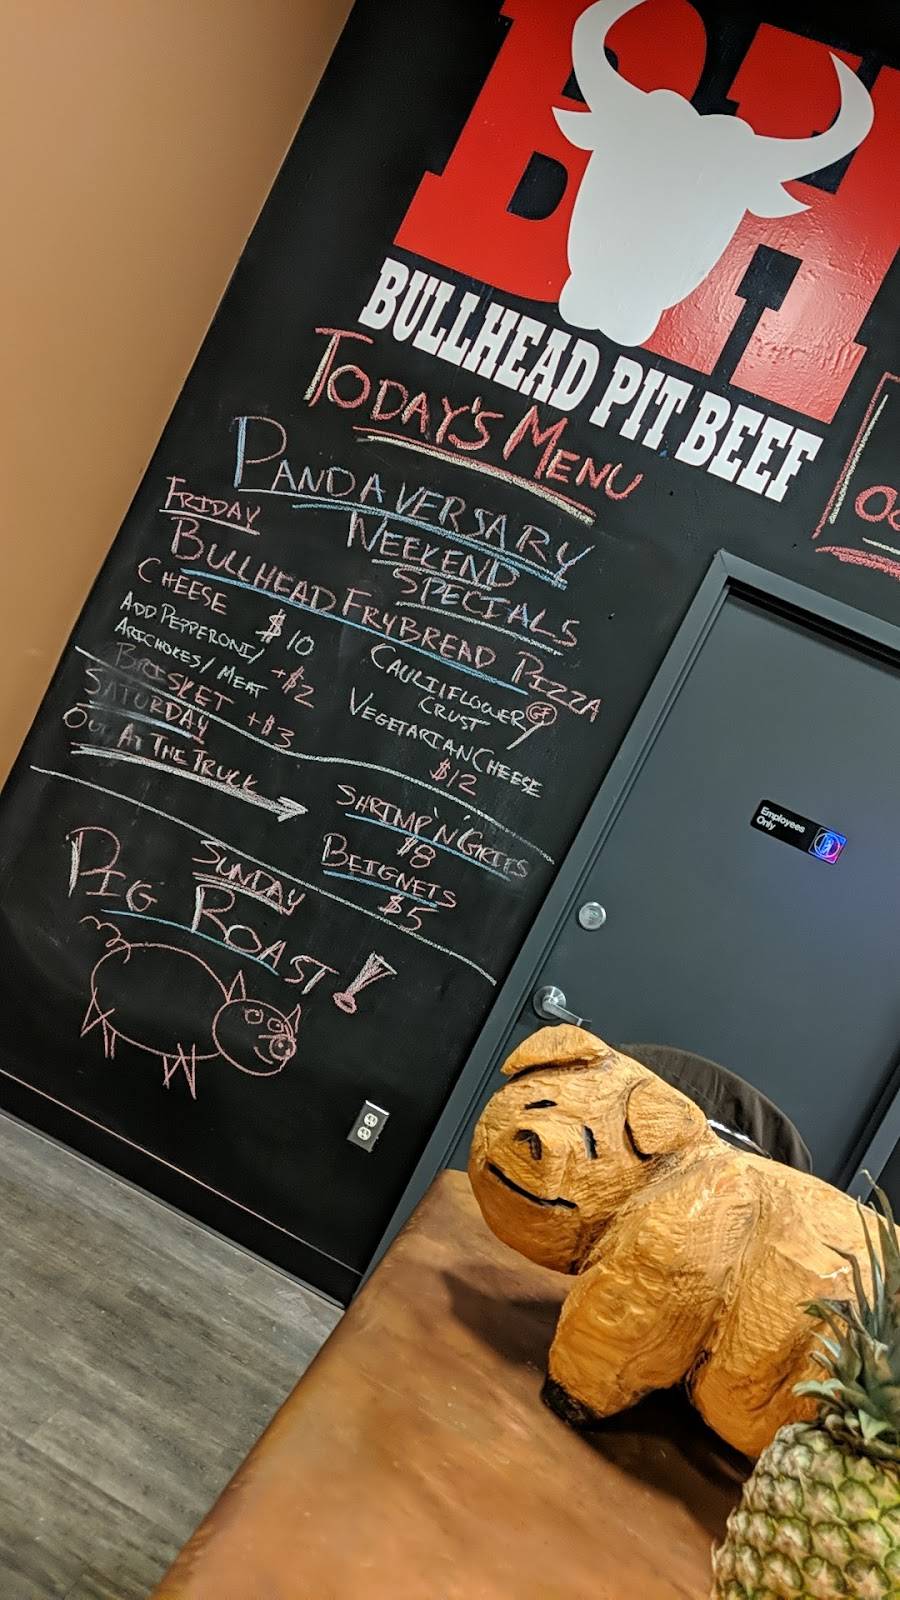 BH
BULLHEAD PIT BEEF
TODAY'S MENU
PANDAVERSARY
WEEKEND
SPECIALS
FRIDAY
BULLHEAD FRYBREAD PIZZA
CHEESE $10
ADD PEPPERONI/
ARICHOKES/MEAT +$2
BRISKET +$3
CAULIIFLOWER GF
CRUST
VEGETARIAN CHEESE
$12
SATURDAY
OUT AT THE TRUCK
SHRIMP 'N' GRITS
$8
BEIGNETS
$5
SUNDAY
PIG ROAST!
Employees
Only